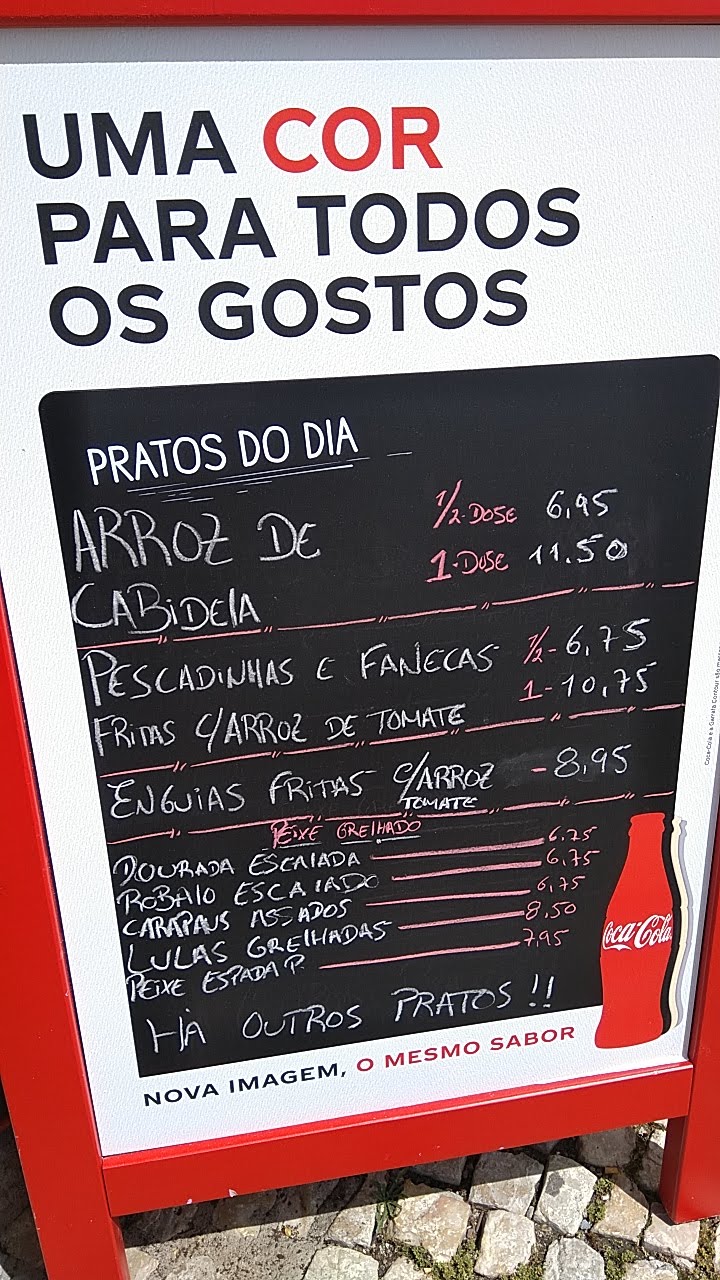 UMA COR
PARA TODOS
OS GOSTOS
PRATOS DO DIA
ARROZ DE
CABIDELA
1/2-DOSE 6,95
1-DOSE 11.50
PESCADINHAS E FANECAS 1/2-6,75
FRITAS C/ARROZ DE TOMATE 1-10,75
ENGUIAS FRITAS C/ARROZ TOMATE -8,95
PEIXE GRELHADO
DOURADA ESCALADA 6.75
ROBALO ESCALADO 6,75
CARAPAUS ASSADOS 6,75
LULAS GRELHADAS 8,50
PEIXE ESPADA P. 7,95
HÁ OUTROS PRATOS!!
Coca-Cola
NOVA IMAGEM, O MESMO SABOR